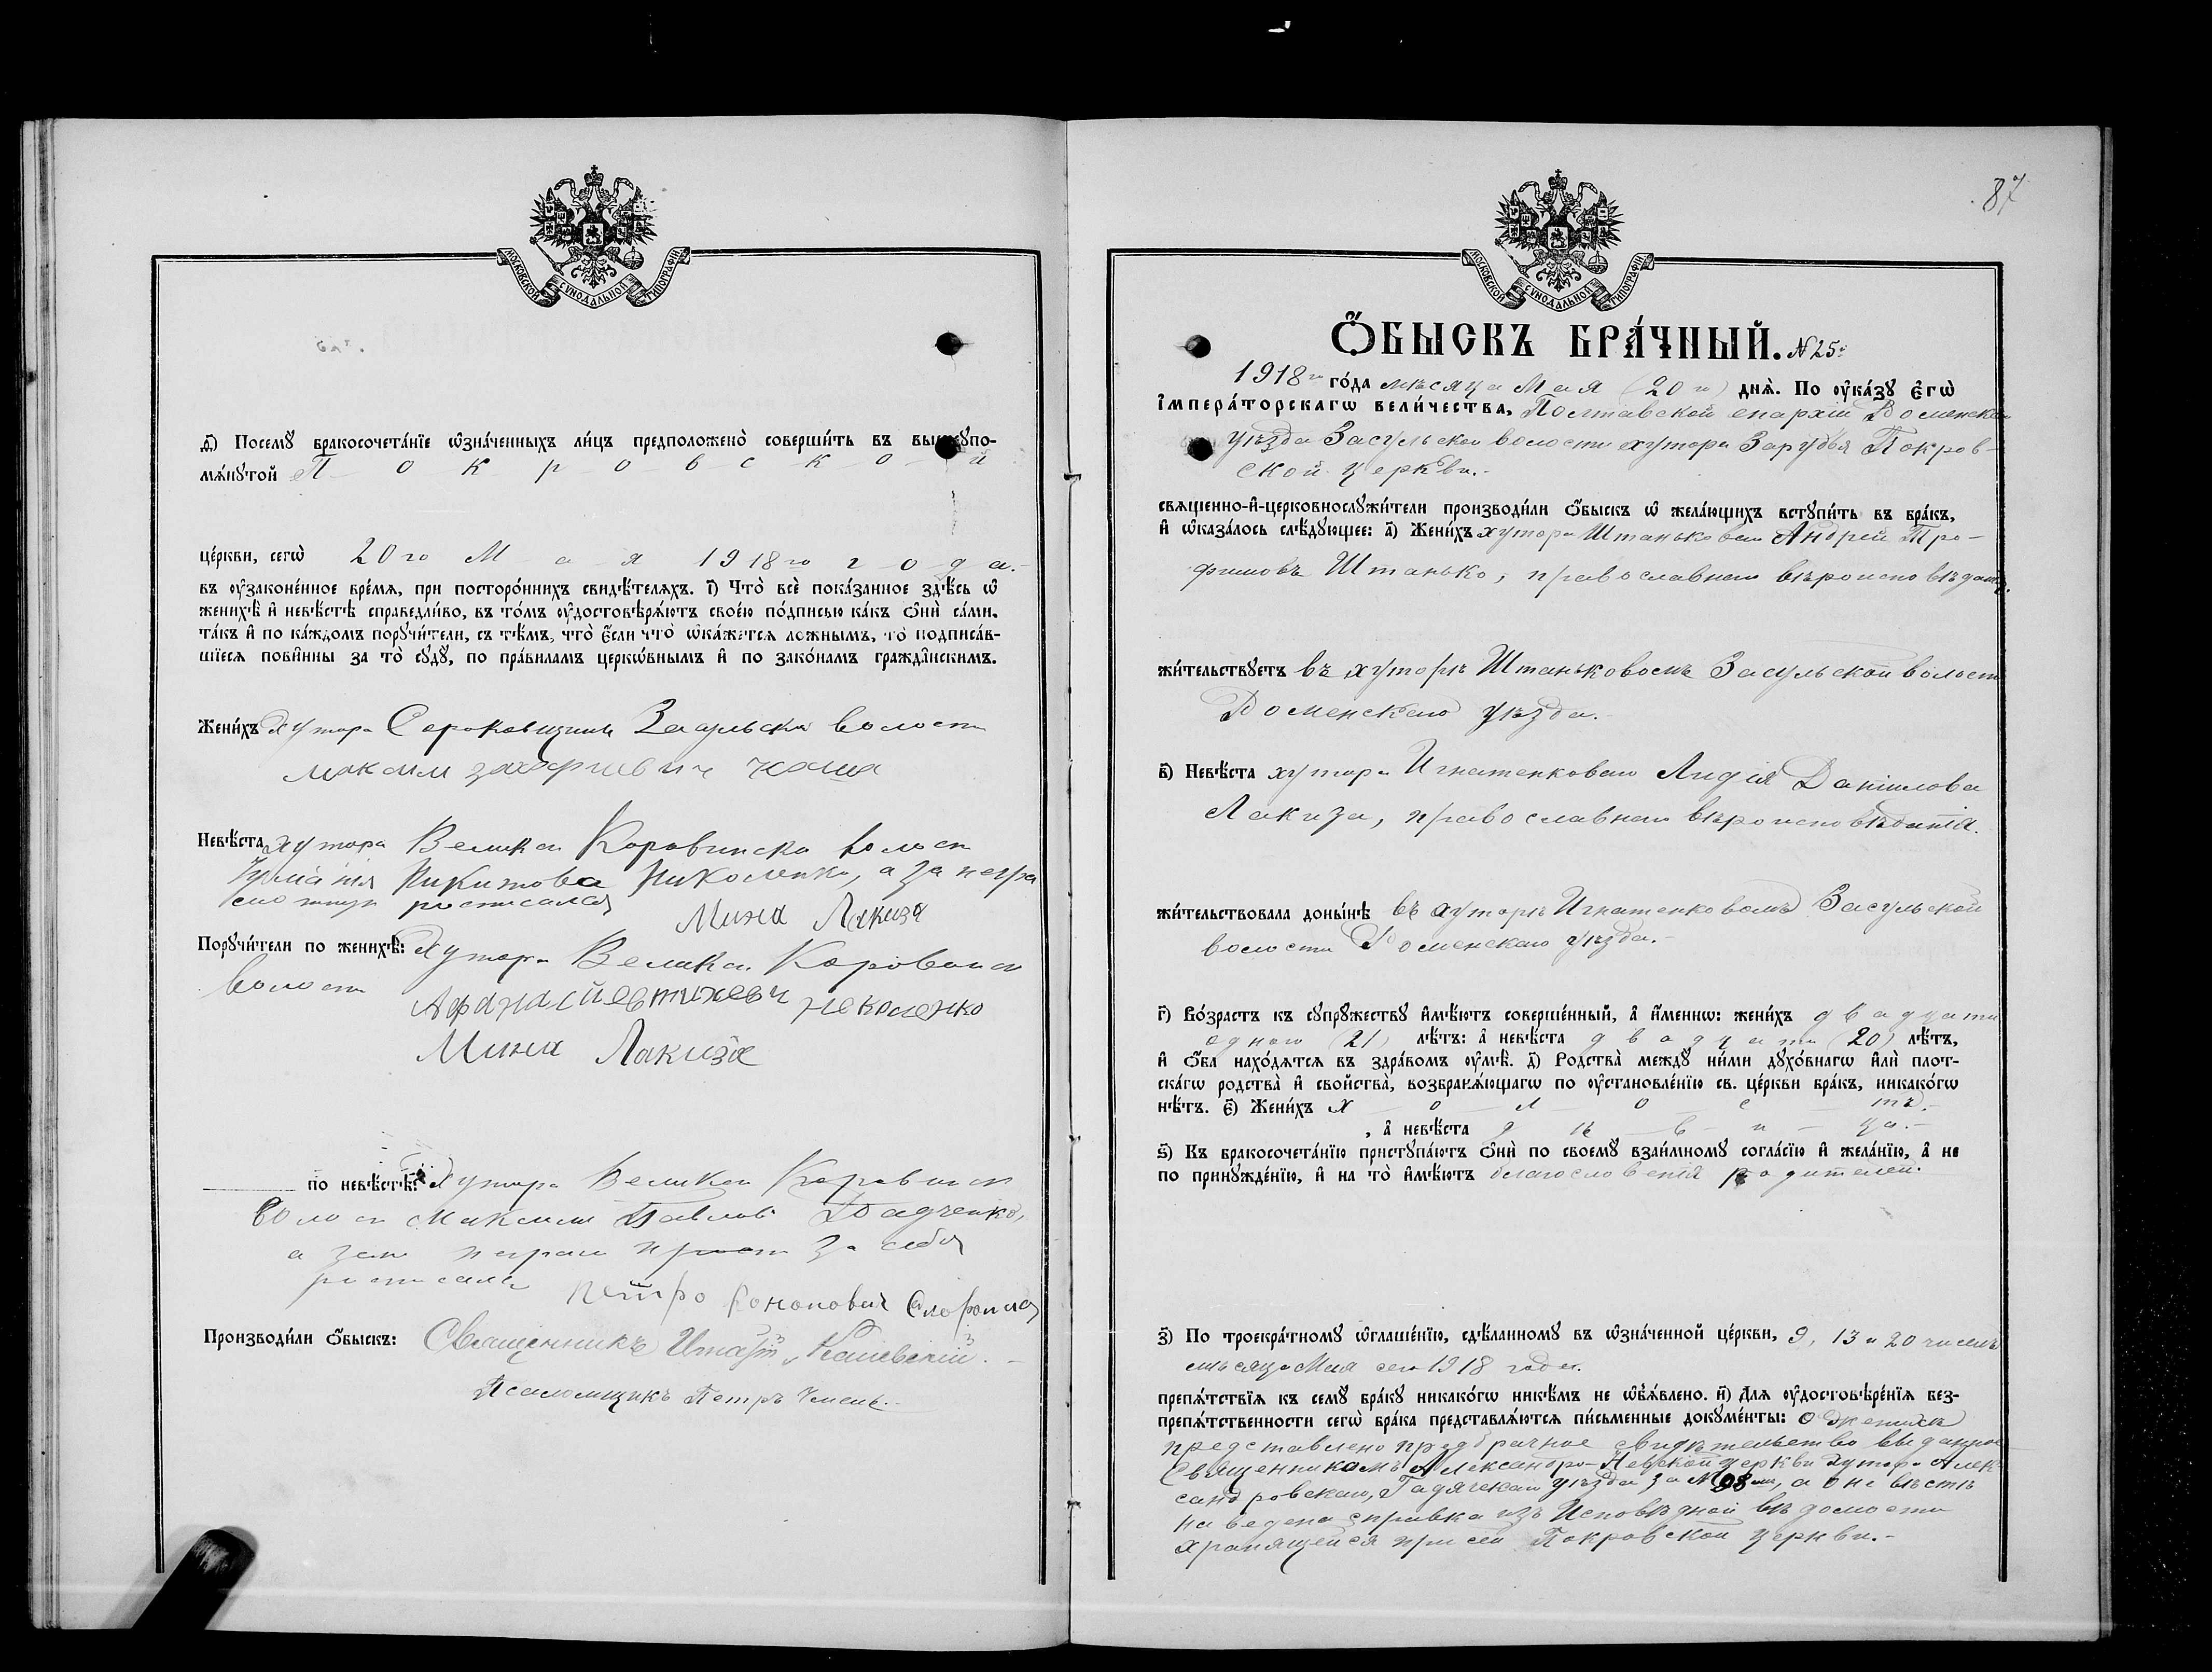 МОСКОВСКОЙ СѴНОДАЛЬНОЙ ТИПОГРАФІИ
Посемꙋ бракосочета́нїе ѡ҆зна́ченныхъ ли́цъ предположено̀ соверши́ть въ вышеꙋпо-
мѧ́нꙋтой П о к р о в с к о й
це́ркви, сегѡ̀ 20го М а я 1918го г о д а.-
въ ᲂу҆зако́ненное вре́мѧ, при посторо́ннихъ свидѣ́телѧхъ. і҃) Что̀ всѐ пока́занное здѣ́сь ѡ҆
женихѣ̀ и҆ невѣ́стѣ справедли́во, въ то́мъ ᲂу҆достовѣрѧ́ютъ свое́ю по́дписью ка́къ ѻ҆нѝ са́ми,
та́къ и҆ по ка́ждомъ порꙋчи́тели, съ тѣ́мъ, что̀ є҆́сли что̀ ѡ҆ка́жетсѧ ло́жнымъ, то̀ подписа́в-
шїесѧ пови́нны за то̀ сꙋдꙋ̀, по пра́виламъ церкѡ́внымъ и҆ по зако́намъ гражда́нскимъ.
Жени́хъ Хутора Сероковщины Засульской волости
Максим Захариевич
Невѣ́ста хутора Великой Коровинской волости
Никитова Николенко, а за негра
мотную росписался Мина Лакиза
Порꙋчи́тели по женихѣ̀: Хутора Великой Коровинской
волости Афанасий Николенко
Мина Лакиза
по невѣ́стѣ: Хутора Великой Коровинской
волости Максим Павлов Радченко,
а за за себя
росписался Петро Кононович
Производи́ли ѻ҆́быскъ: Священникъ
Псаломщикъ Петръ
87
МОСКОВСКОЙ СѴНОДАЛЬНОЙ ТИПОГРАФІИ
Ѻ҆́БЫСКЪ БРА́ЧНЫЙ. № 25й
1918го го́да мѣсяца Мая (20го) днѧ̀. По ᲂу҆ка́зꙋ є҆гѡ̀
і҆мпера́торскагѡ вели́чества, Полтавской епархіи Роменскаго
уѣзда Засульской волости хутора Зарудья Покров-
ской церкви.-
свѧще́нно-и҆-церковнослꙋжи́тели производи́ли ѻ҆́быскъ ѡ҆ жела́ющихъ встꙋпи́ть въ бра́къ,
и҆ ѡ҆каза́лось слѣ́дꙋющее: а҃) Жени́хъ хутора Штаньковаго Андрей Тро-
фимовъ Штанько, православнаго вѣроисповѣданія.
жи́тельствꙋетъ въ хуторѣ Штаньковомъ Засульской волости
Роменскаго уѣзда.-
в҃) Невѣ́ста хутора Игнатенковаго Лидія Даніилова
Лакиза, православнаго вѣроисповѣданія.
жи́тельствовала доны́нѣ въ хуторѣ Игнатенковомъ Засульской
волости Роменскаго уѣзда.-
г҃) Во́зрастъ къ сꙋпрꙋ́жествꙋ и҆мѣ́ютъ соверше́нный, а҆ и҆́меннѡ: жени́хъ двадцати
одного (21) лѣ́тъ: а҆ невѣ́ста двадцати (20) лѣ́тъ,
и҆ ѻ҆́ба нахо́дѧтсѧ въ здра́вомъ ᲂу҆мѣ̀. д҃) Родства̀ междꙋ̀ ни́ми дꙋхо́внагѡ и҆лѝ плот-
ска́гѡ родства̀ и҆ сво́йства, возбранѧ́ющагѡ по ᲂу҆становле́нїю св. це́ркви бра́къ, никако́гѡ
нѣ́тъ. є҃) Жени́хъ х о л о с тъ.-
, а҆ невѣ́ста д ѣ в и ца.-
ѕ҃) Къ бракосочета́нїю пристꙋпа́ютъ ѻ҆нѝ по своемꙋ̀ взаи́мномꙋ согла́сїю и҆ жела́нїю, а҆ не
по принꙋжде́нїю, и҆ на то̀ и҆мѣ́ютъ благословенія родителей.
з҃) По троекра́тномꙋ ѡ҆глаше́нїю, сдѣ́ланномꙋ въ ѡ҆зна́ченной це́ркви, 9, 13 и 20 чиселъ
мѣсяца Мая сего 1918 года.
препѧ́тствїѧ къ семꙋ̀ бра́кꙋ никако́гѡ никѣ́мъ не ѡ҆б̾ѧ́влено. и҃) Длѧ ᲂу҆достовѣре́нїѧ без-
препѧ́тственности сегѡ̀ бра́ка представлѧ́ютсѧ пи́сьменные докꙋме́нты: о женихѣ
представлено предбрачное свидѣтельство выданное
Священникомъ Александро-Невской церкви хутора Алек
сандровскаго, Гадячскаго уѣзда за № 98, а о невѣстѣ
наведена справка изъ Исповѣдной вѣдомости
хранящейся при сей Покровской церкви.-